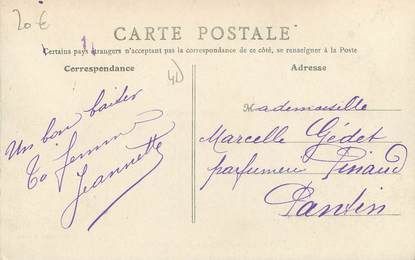 20 €
CARTE POSTALE
Certains pays étrangers n'acceptant pas la correspondance de ce côté, se renseigner à la Poste
Correspondance
Adresse
Un bon baiser
Ta femme
Jeannette
Mademoiselle
Marcelle Gédet
parfumeur Pinaud
Pantin